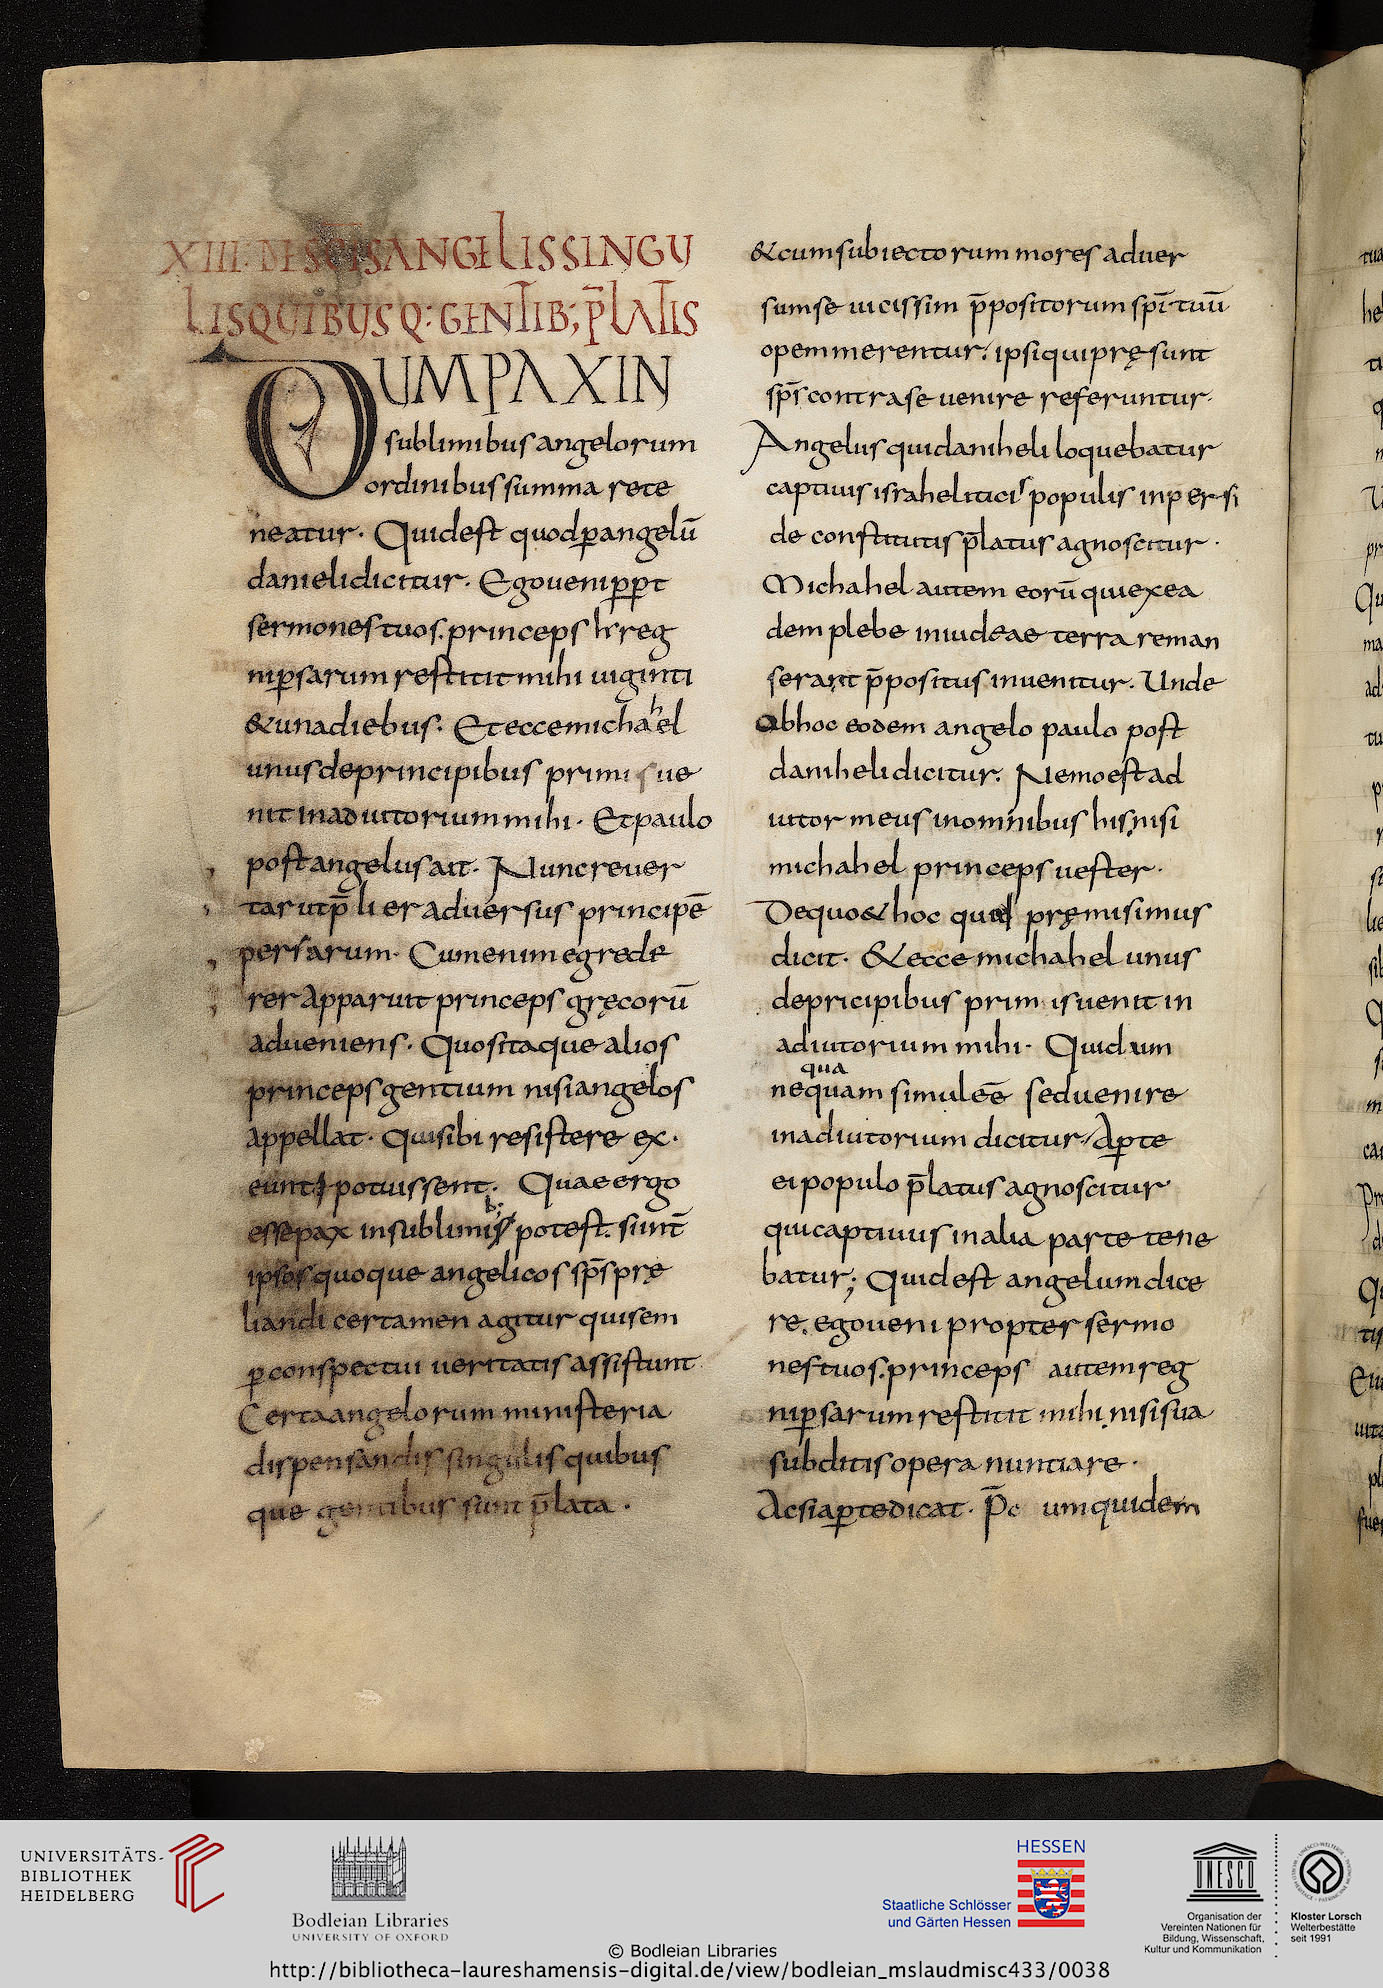 XIII. DE SC̄IS ANGELIS SINGU
LIS QUIBUS Q: GENTIB; P̄LATIS
CUM PAX IN
sublimibus angelorum
ordinibus summa rete
neatur. Quid est quod ꝑ angelū
danieli dicitur. Ego veni ꝓpt
sermones tuos. princeps hr̄ reg
ni ꝑsarum restitit mihi uiginti
& una diebus. Et ecce michahel
unus de principibus primis ue
nit in adiutorium mihi. Et paulo
post angelus ait. Nunc reuer
tar ut p̄lier aduersus principē
persarum. Cum enim egrede
rer apparuit princeps gręcorū
adueniens. Quos itaque alios
princeps gentium nisi angelos
appellat. Qui sibi resistere ex
eunti potuissent. Quae ergo
esse pax in sublimib; potest. si int̄
ipsos quoque angelicos sp̄s prę
liandi certamen agitur qui sem
ꝑ conspectui ueritatis assistunt
Certa angelorum ministeria
dispensandis singulis quibus
que gentibus sunt p̄lata.
& cum subiectorum mores aduer
sum se uicissim p̄positorum sp̄ituū
opem merentur. ipsi qui pręsunt
sp̄s contra se uenire referuntur.
Angelus qui daniheli loquebatur
captiuis israheliticis populis in persi
de constitutis p̄latus agnoscitur.
Michahel autem eorū qui ex ea
dem plebe in iudeae terra reman
serant p̄positus inuenitur. Unde
ob hoc eodem angelo paulo post
daniheli dicitur. Nemo est ad
iutor meus in omnibus his nisi
michahel princeps uester.
De quo & hoc quod pręmisimus
dicit. & ecce michahel unus
de pricipibus primis uenit in
adiutorium mihi. Qui dum
qua
nequam simul eē sed uenire
in adiutorium dicitur. Aꝑte
ei populo p̄latus agnoscitur
qui captiuus in alia parte tene
batur; Quid est angelum dice
re. ego ueni propter sermo
nes tuos. princeps autem reg
ni ꝑsarum restitit mihi. nisi sua
subditis opera nuntiare.
Ac si aꝑte dicat. P̄c um quidem
UNIVERSITÄTS-
BIBLIOTHEK
HEIDELBERG
Bodleian Libraries
UNIVERSITY OF OXFORD
HESSEN
Staatliche Schlösser
und Gärten Hessen
UNESCO
Organisation der
Vereinten Nationen für
Bildung, Wissenschaft,
Kultur und Kommunikation
Kloster Lorsch
Welterbestätte
seit 1991
© Bodleian Libraries
http://bibliotheca-laureshamensis-digital.de/view/bodleian_mslaudmisc433/0038